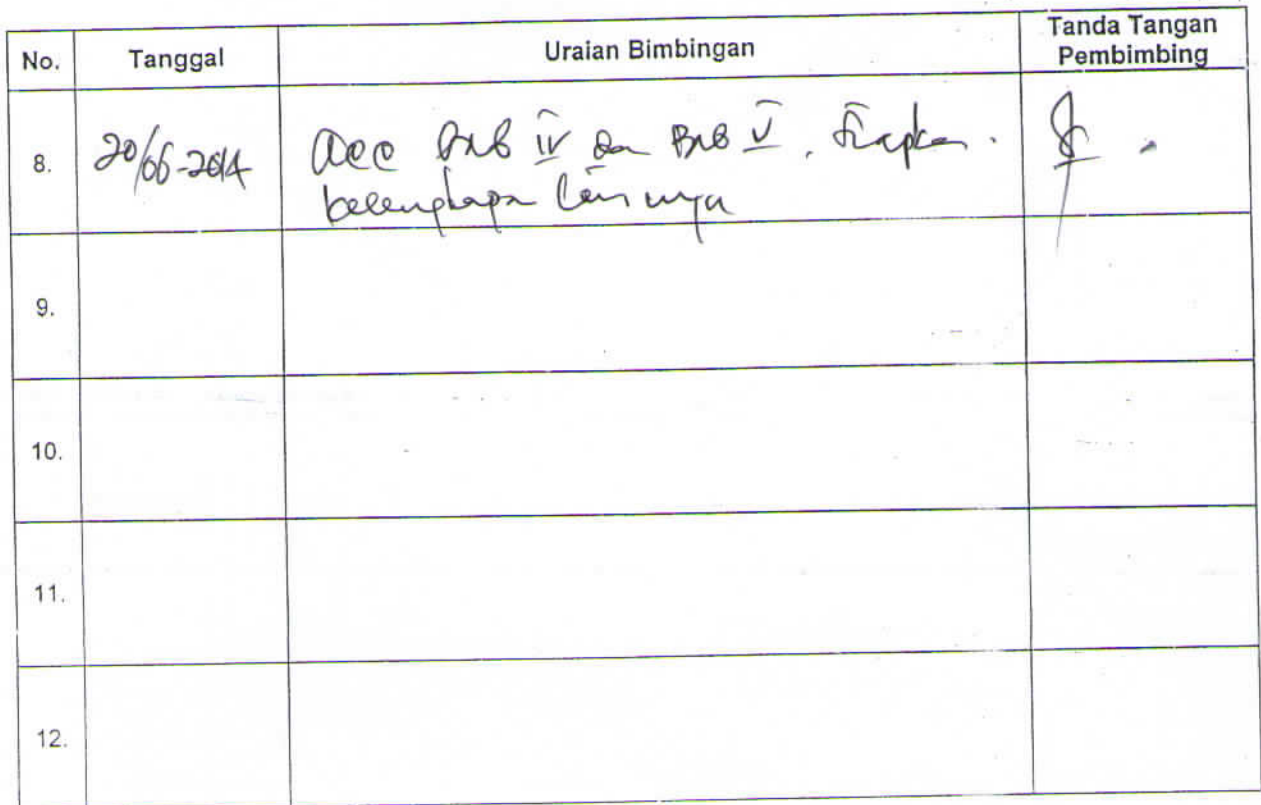 No. Tanggal Uraian Bimbingan Tanda Tangan Pembimbing
8. 20/06-2014 Acc BAB IV dan BAB V. Siapkan
kelengkapan lainnya
9.
10.
11.
12.